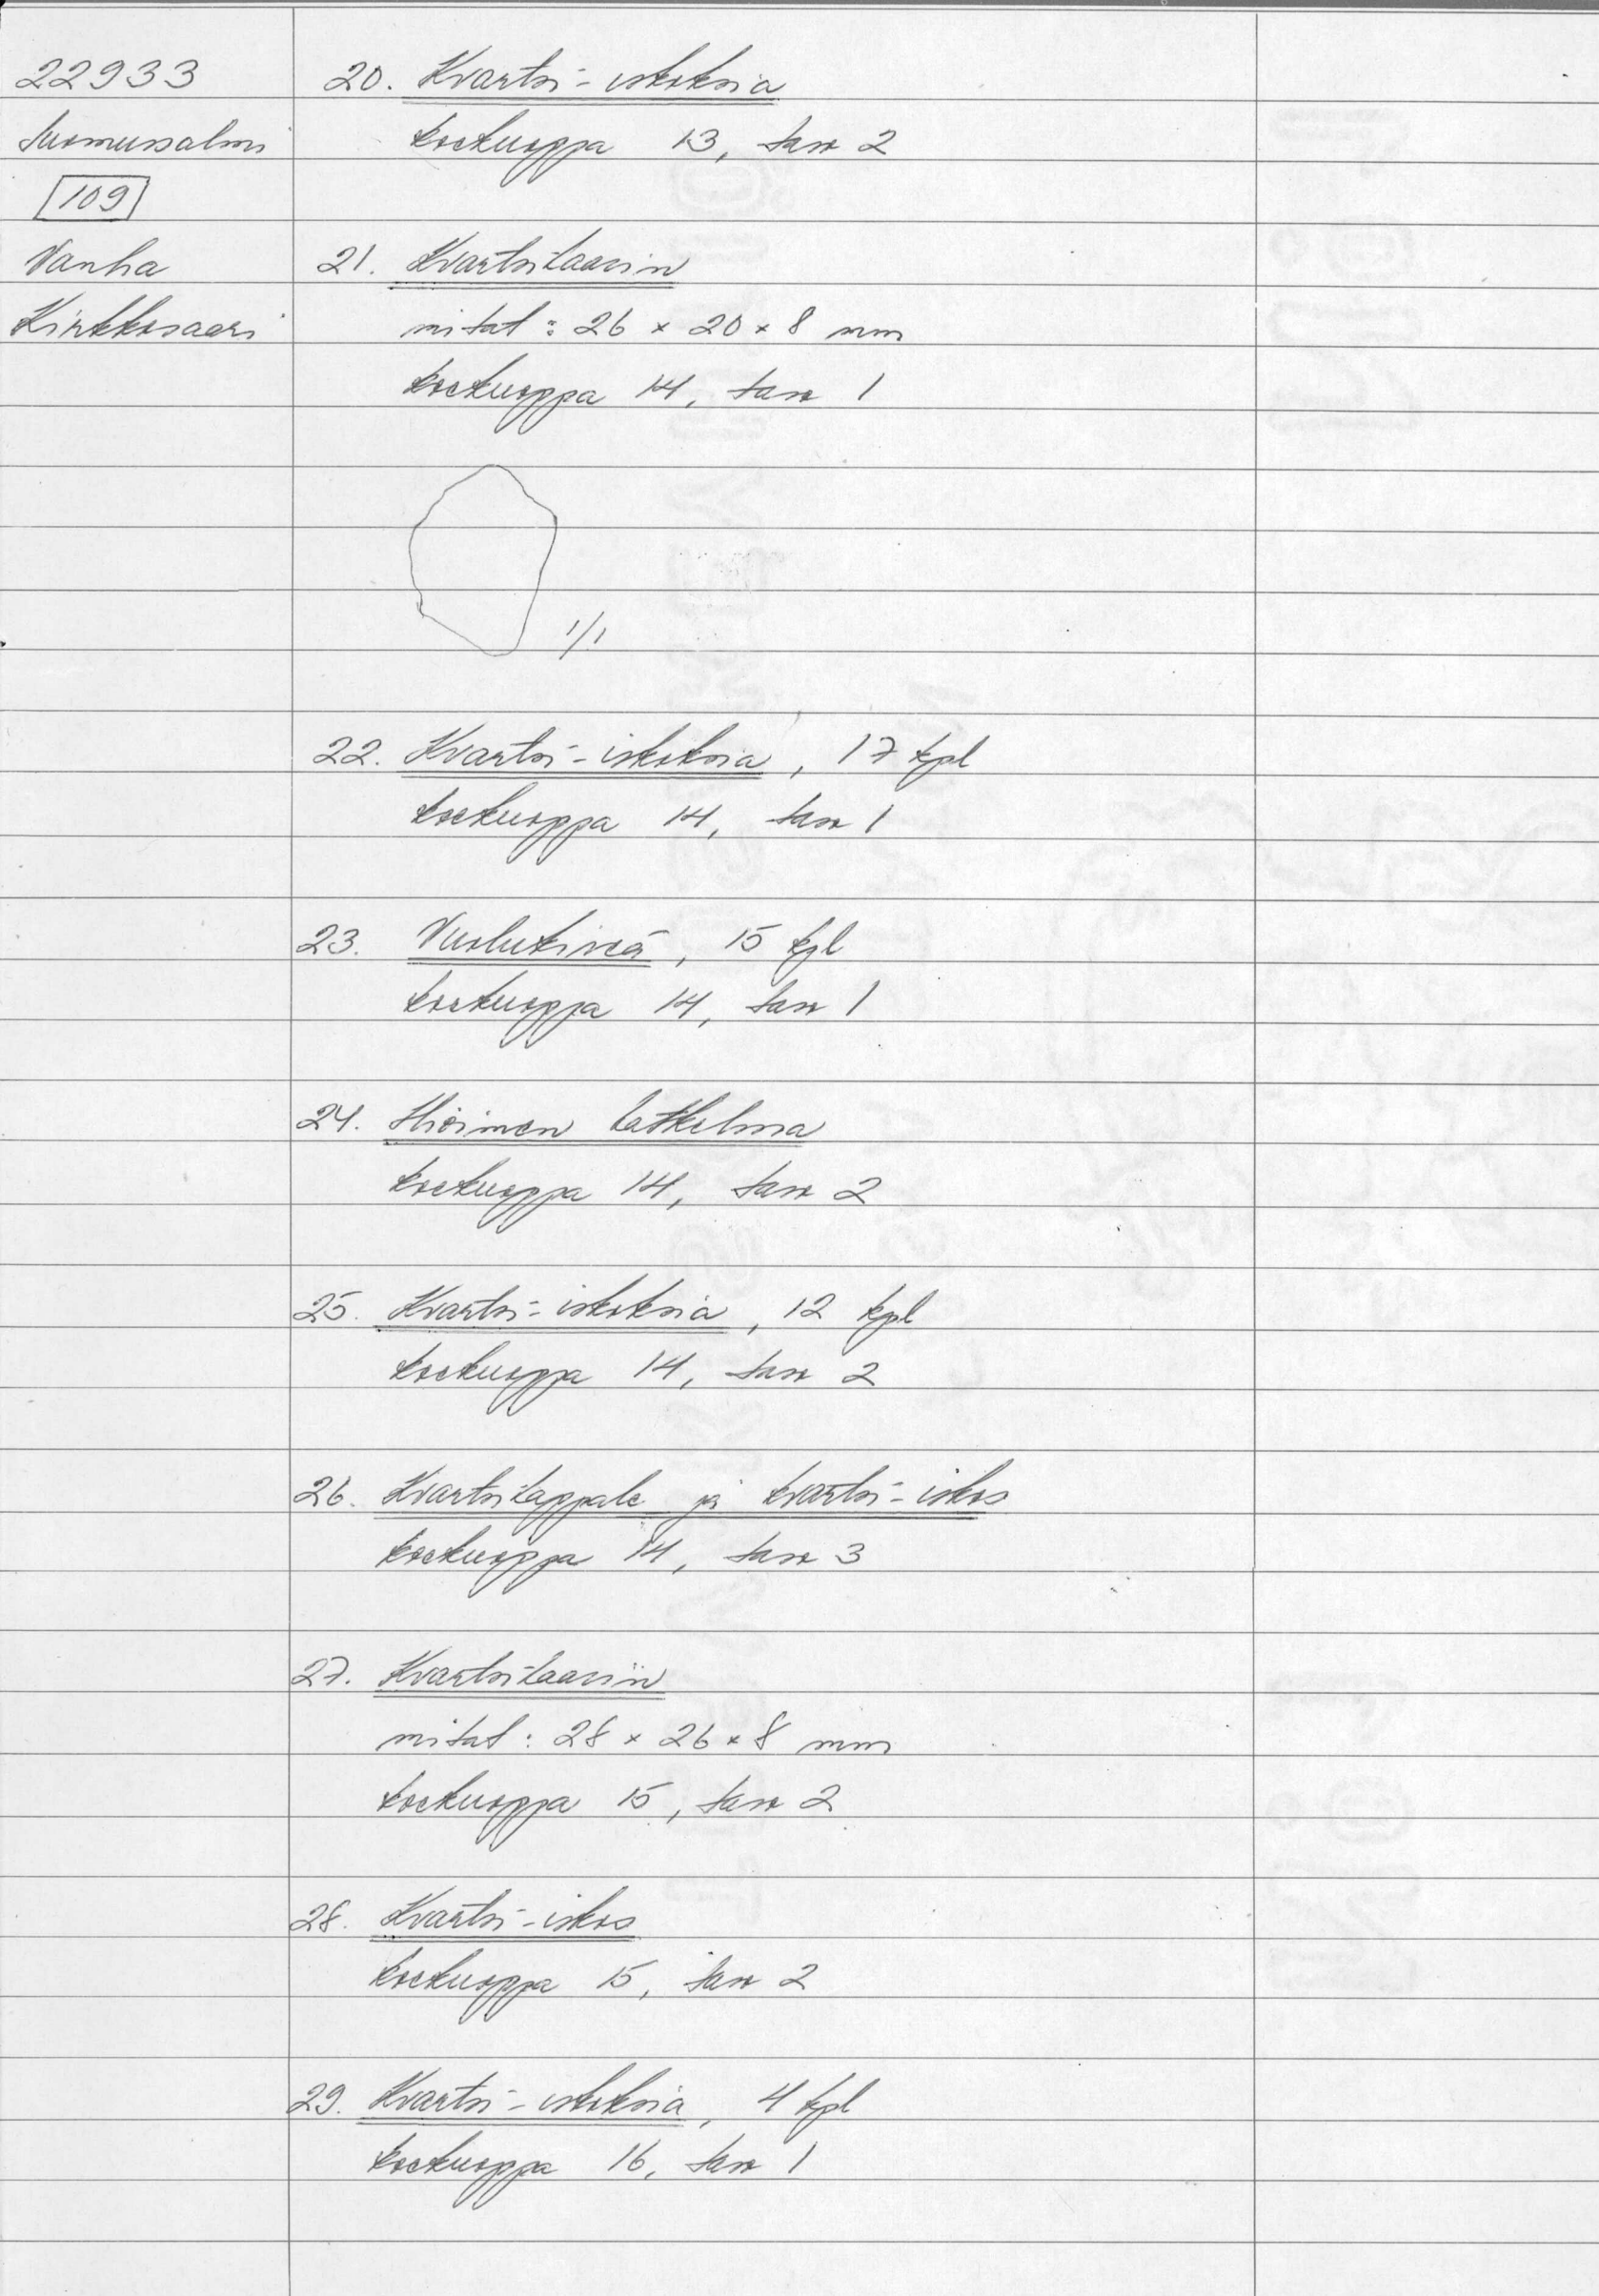 22933
Suomussalmi
109
Vanha
Kirkkosaari
20. Kvartsi-iskoksia
koekuoppa 13, taso 2
21. Kvartsikaavin
mitat: 26 x 20 x 8 mm
koekuoppa 14, taso 1
1/1
22. Kvartsi-iskoksia, 17 kpl
koekuoppa 14, taso 1
23. Vuolukiveä, 15 kpl
koekuoppa 14, taso 1
24. Hioimen katkelma
koekuoppa 14, taso 2
25. Kvartsi-iskoksia, 12 kpl
koekuoppa 14, taso 2
26. Kvartsikappale ja kvartsi-iskos
koekuoppa 14, taso 3
27. Kvartsikaavin
mitat: 28 x 26 x 8 mm
koekuoppa 15, taso 2
28. Kvartsi-iskos
koekuoppa 15, taso 2
29. Kvartsi-iskoksia, 4 kpl
koekuoppa 16, taso 1